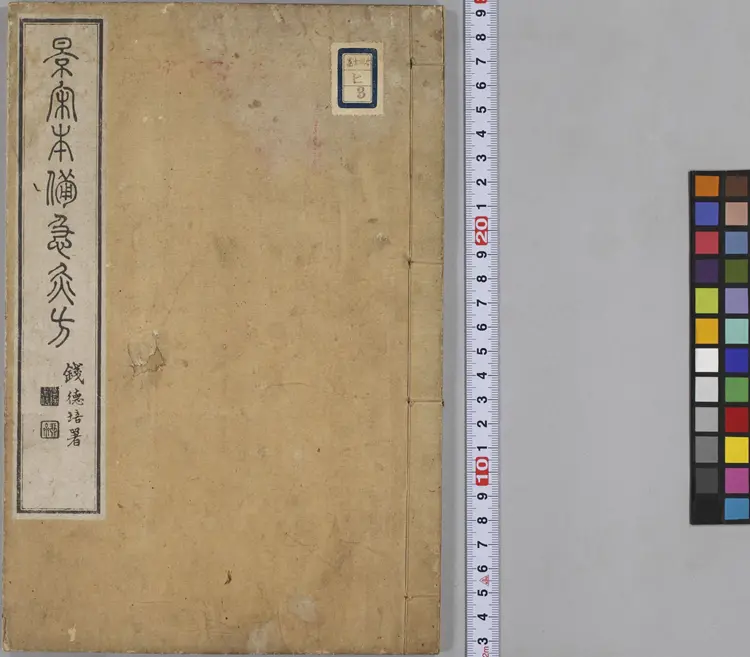 景宋本備急灸方
錢德培署
ヒ
8
9
8
7
6
5
4
3
2
1
20
9
8
7
6
5
4
3
2
1
10
9
8
7
6
5
4
3